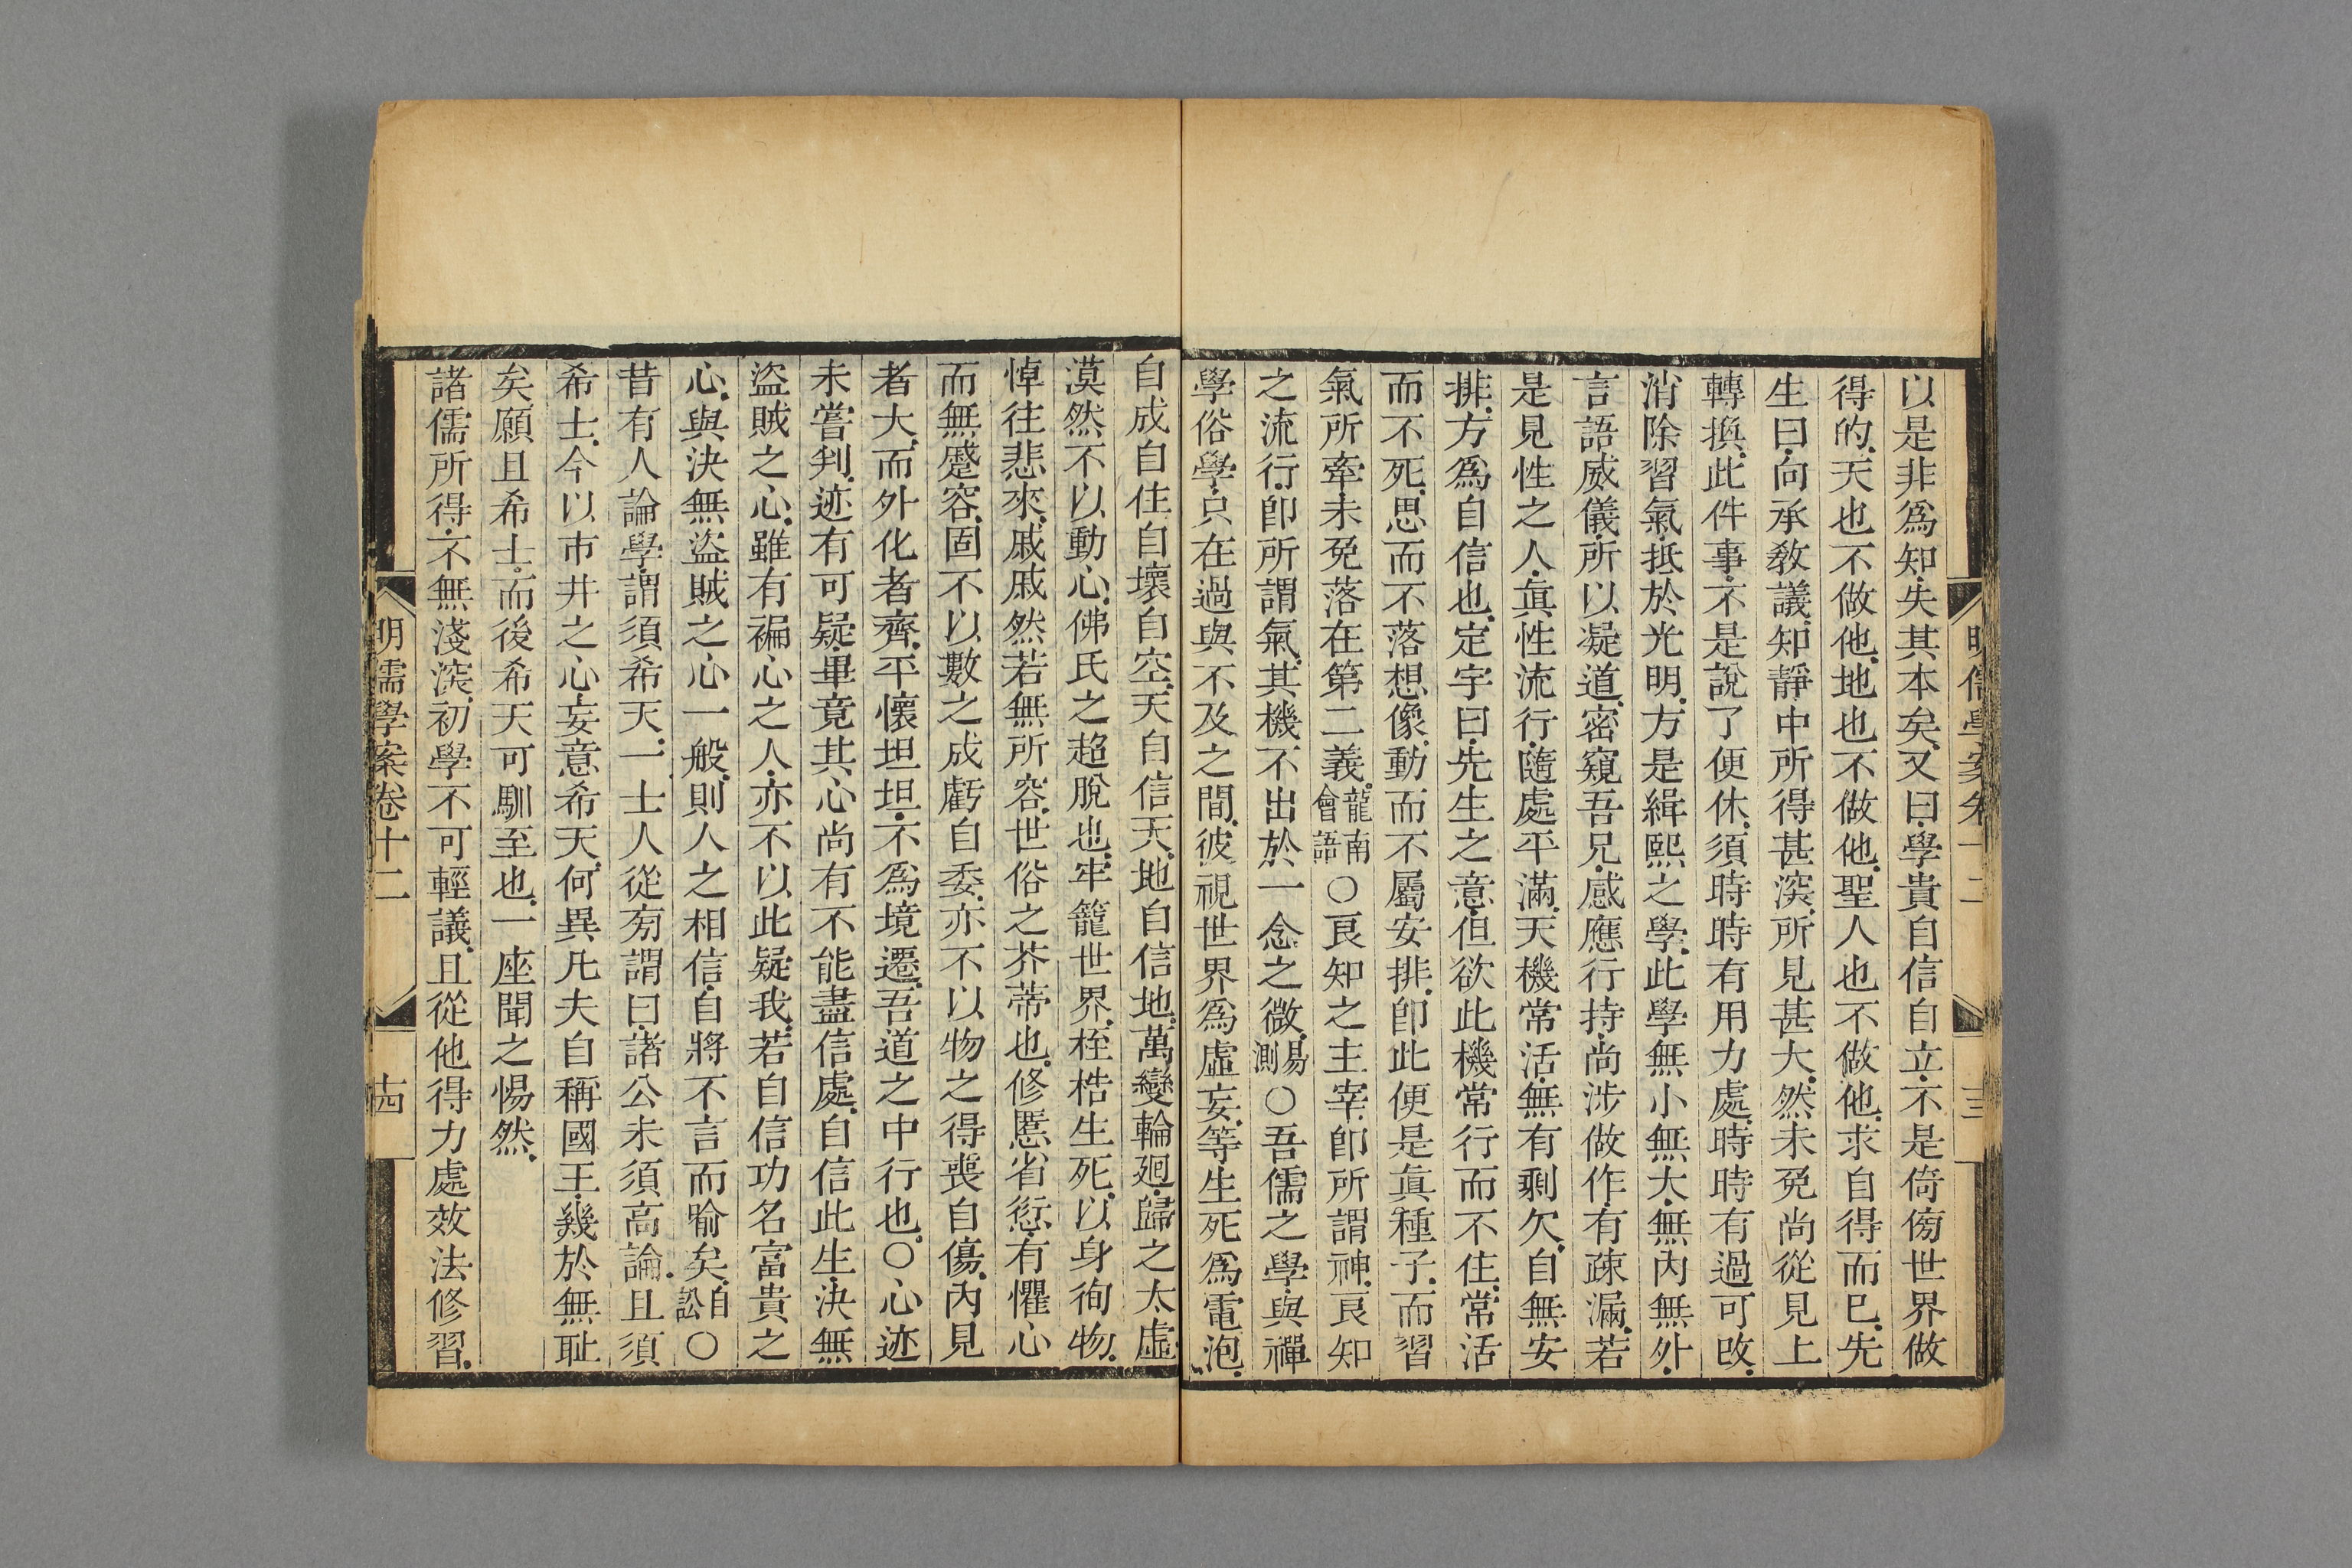 以是非爲知失其本矣又曰學貴自信自立不是倚傍世界做
得的天也不做他地也不做他聖人也不做他求自得而已先
生曰向承敎議知靜中所得甚深所見甚大然未免尚從見上
轉換此件事不是說了便休須時時有用力處時時有過可改
消除習氣抵於光明方是緝熙之學此學無小無大無內無外
言語威儀所以凝道密窺吾兄感應行持尚涉做作有疎漏若
是見性之人眞性流行隨處平滿天機常活無有剩欠自無安
排方爲自信也定宇曰先生之意但欲此機常行而不住常活
而不死思而不落想像動而不屬安排卽此便是眞種子而習
氣所牽未免落在第二義龍南會語○良知之主宰卽所謂神良知
之流行卽所謂氣其機不出於一念之微易測○吾儒之學與禪
學俗學只在過與不及之間彼視世界爲虛妄等生死爲電泡
自成自住自壞自空天自信天地自信地萬變輪廻歸之太虛
漠然不以動心佛氏之超脫也牢籠世界桎梏生死以身徇物
悼往悲來戚戚然若無所容世俗之芥蒂也修慝省愆有懼心
而無蹙容固不以數之成虧自委亦不以物之得喪自傷內見
者大而外化者齊平懷坦坦不爲境遷吾道之中行也○心迹
未嘗判迹有可疑畢竟其心尚有不能盡信處自信此生決無
盜賊之心雖有褊心之人亦不以此疑我若自信功名富貴之
心與決無盜賊之心一般則人之相信自將不言而喻矣自訟○
昔有人論學謂須希天一士人從旁謂曰諸公未須高論且須
希士今以市井之心妄意希天何異凡夫自稱國王幾於無耻
矣願且希士而後希天可馴至也一座聞之惕然
諸儒所得不無淺深初學不可輕議且從他得力處效法修習
明儒學案卷十二
十四